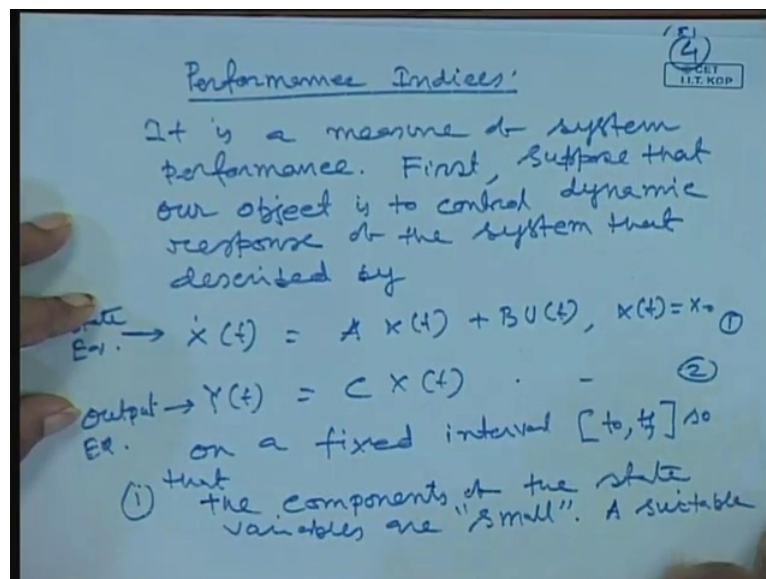 (4)
© CET
I.I.T. KGP
Performance Indices:
It is a measure of system
performance. First, suppose that
our object is to control dynamic
response of the system that
described by
State Eq. → ẋ(t) = A x(t) + B U(t), x(t) = x₀ ①
Output Eq. → Y(t) = C x(t) . – ②
on a fixed interval [t₀, tf] so
that
① the components of the state
variables are "small". A suitable